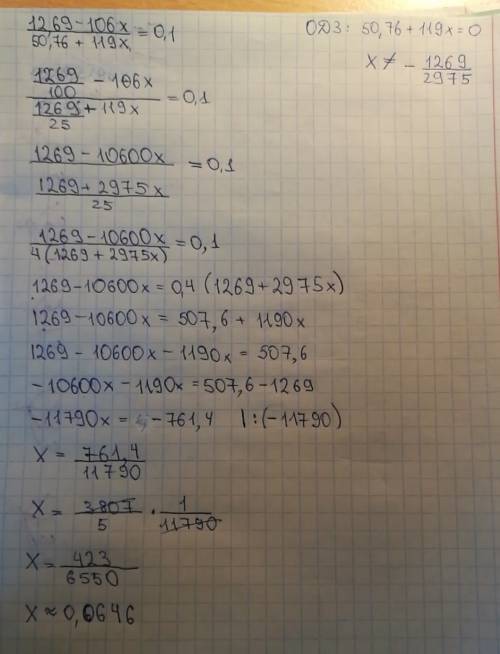 1269-106x / 50,76 + 119x = 0,1
ОДЗ: 50,76 + 119x = 0
x ≠ - 1269/2975
(1269/100 - 106x) / (1269/25 + 119x) = 0,1
(1269 - 10600x) / ((1269 + 2975x)/25) = 0,1
(1269 - 10600x) / (4(1269 + 2975x)) = 0,1
1269-10600x = 0,4 (1269+2975x)
1269-10600x = 507,6 + 1190x
1269 - 10600x - 1190x = 507,6
-10600x - 1190x = 507,6 - 1269
-11790x = -761,4 |:(-11790)
x = 761,4/11790
x = 3807/5 · 1/11790
x = 423/6550
x ≈ 0,0646